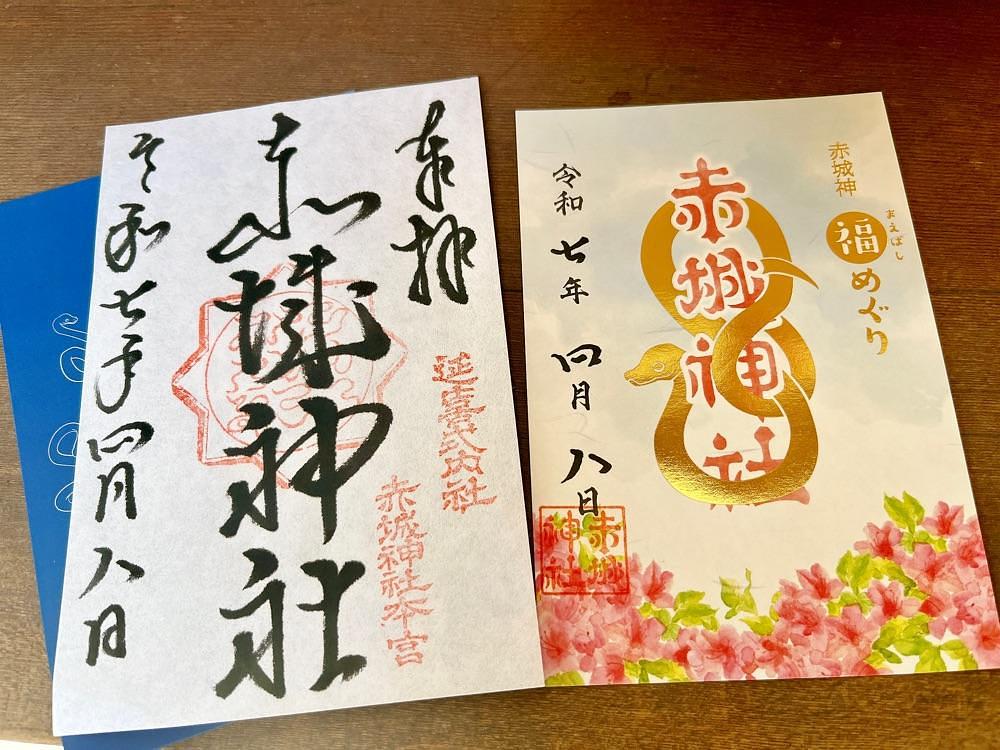 奉拝
延喜式内社
赤城神社本宮
赤城神社
令和七年四月八日
赤城神
福めぐり
おえばし
赤城神社
令和七年四月八日
赤城
神社